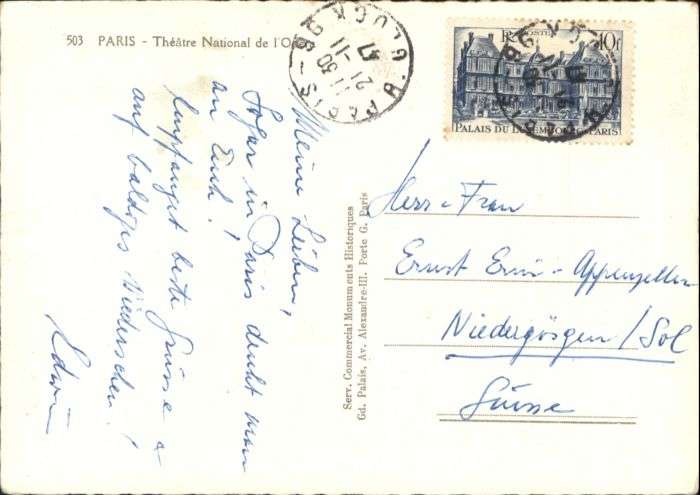 503 PARIS - Théâtre National de l'O
PARIS
11 30
21-11
47
POSTES 10f
PALAIS DU LUXEMBOURG-PARIS
Meine Lieben,
Sogar in Paris denkt man
an Euch!
Empfanget beste Grüsse &
auf baldiges Wiedersehen!
Edwin
Serv. Commercial Monuments Historiques
Gd. Palais, Av. Alexandre-III. Porte G. Paris
Herr & Frau
Ernst Erni - Appenzeller
Niedergösgen / Sol
Suisse